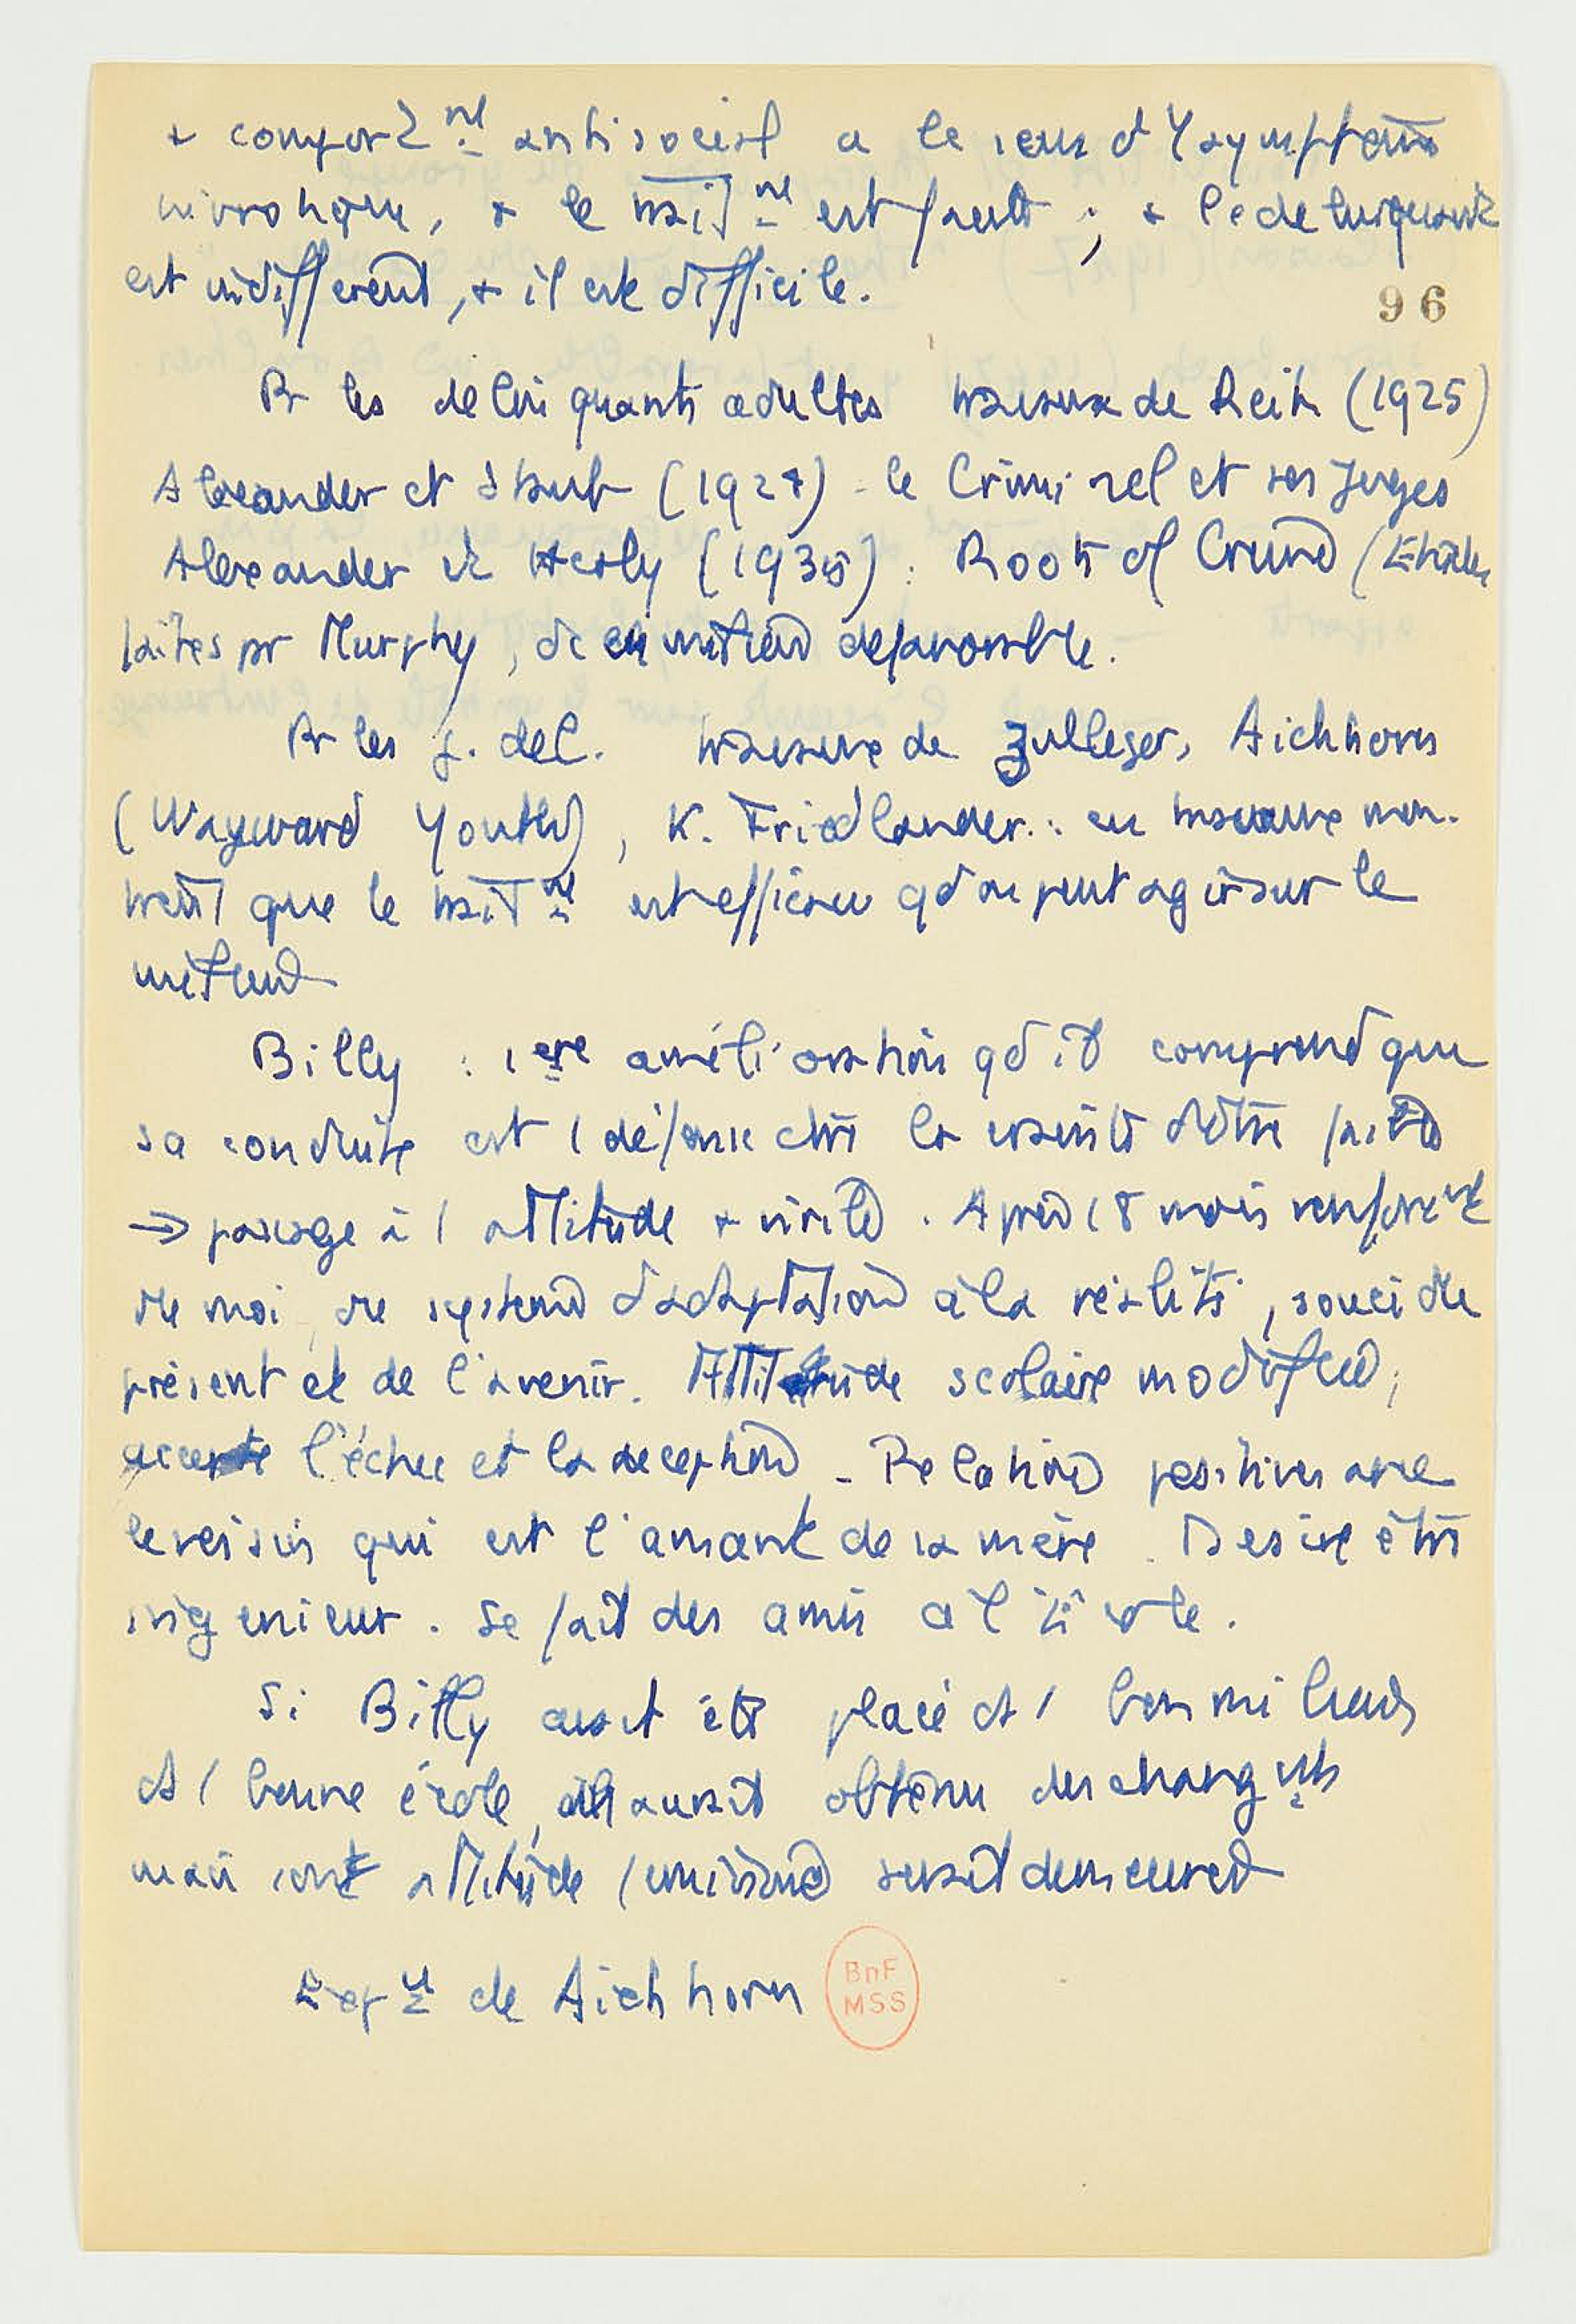 + comport.nt antisocial a le sens d'1 symptôme
névrotique, + le trait.nt est facile ; + le délinquant
est indifférent, + il est difficile.
96
Pr les délinquants adultes travaux de Reik (1925)
Alexander et Staub (1928) - le Criminel et ses Juges
Alexander et Healy (1935) : Roots of Crime (Etudes
faites pr Murphy, ds en milieu défavorable.
Pr les j. del. travaux de Zulliger, Aichhorn
(Wayward Youth), K. Friedlander : ces travaux mon-
trent que le trait.nt est efficace qd on peut agir sur le
milieu
Billy : 1ère amélioration qd il comprend que
sa conduite est 1 défense ctre la crainte d'être
→ passage à 1 attitude + virile. Après 18 mois renforcnt
du moi, du système d'adaptation à la réalité, souci du
présent et de l'avenir. Attitude scolaire modifiée ;
accepte l'échec et la déception - Relations positives avec
le voisin qui est l'amant de sa mère. Désire être
ingénieur. Se fait des amis à l'école.
Si Billy avait été placé ds 1 bon milieu
ds 1 bonne école, il aurait obtenu des changnts
mais son attitude féminine serait demeurée
Expce de Aichhorn
BnF
MSS